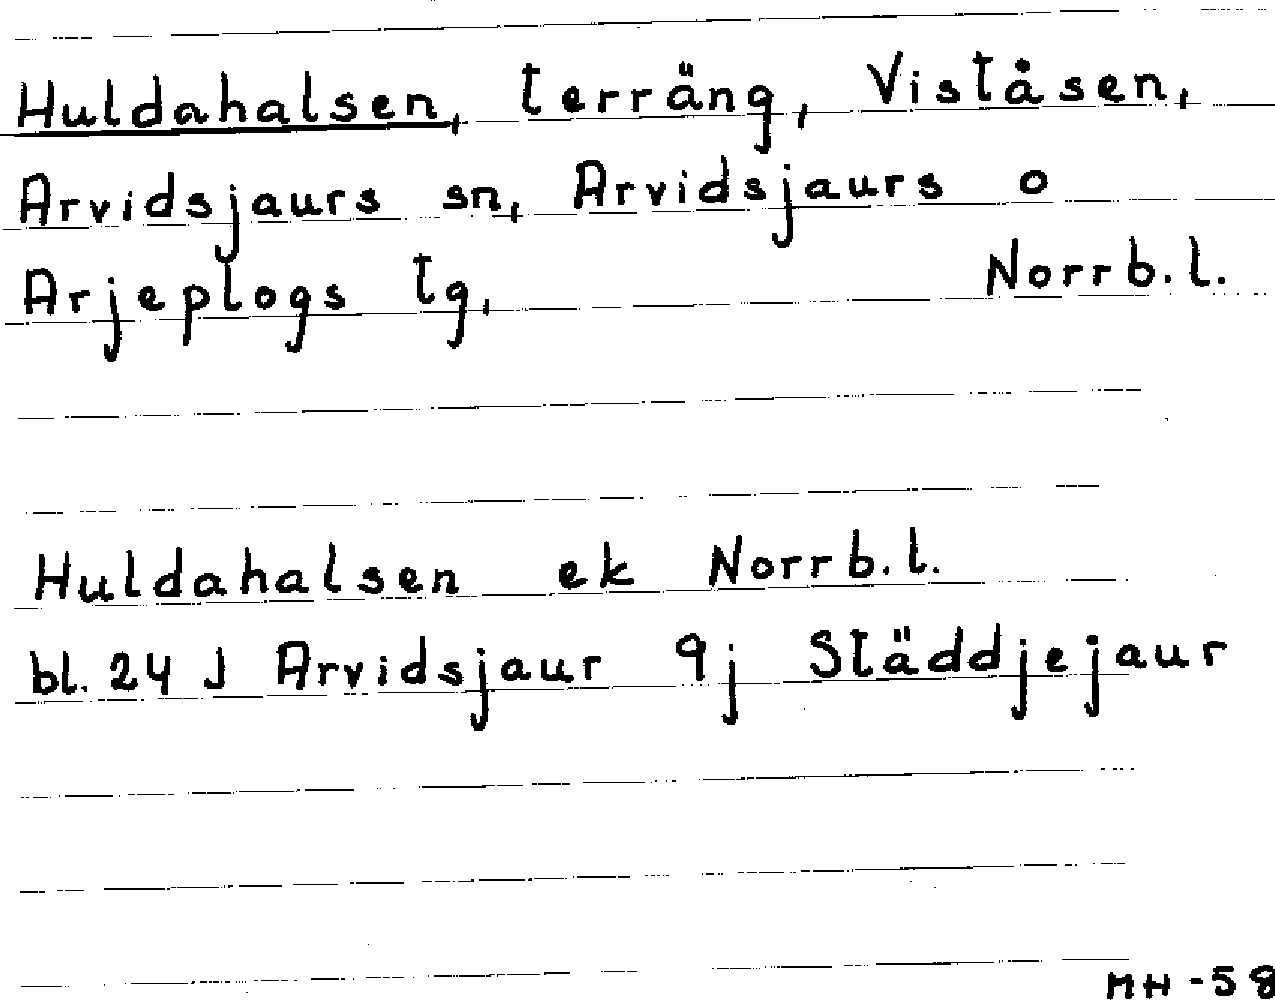 Huldahalsen, terräng, Viståsen,
Arvidsjaurs sn, Arvidsjaurs o
Arjeplogs tg, Norrb.l.
Huldahalsen ek Norrb.l.
bl. 24 J Arvidsjaur 9j Städdjejaur
MH-58